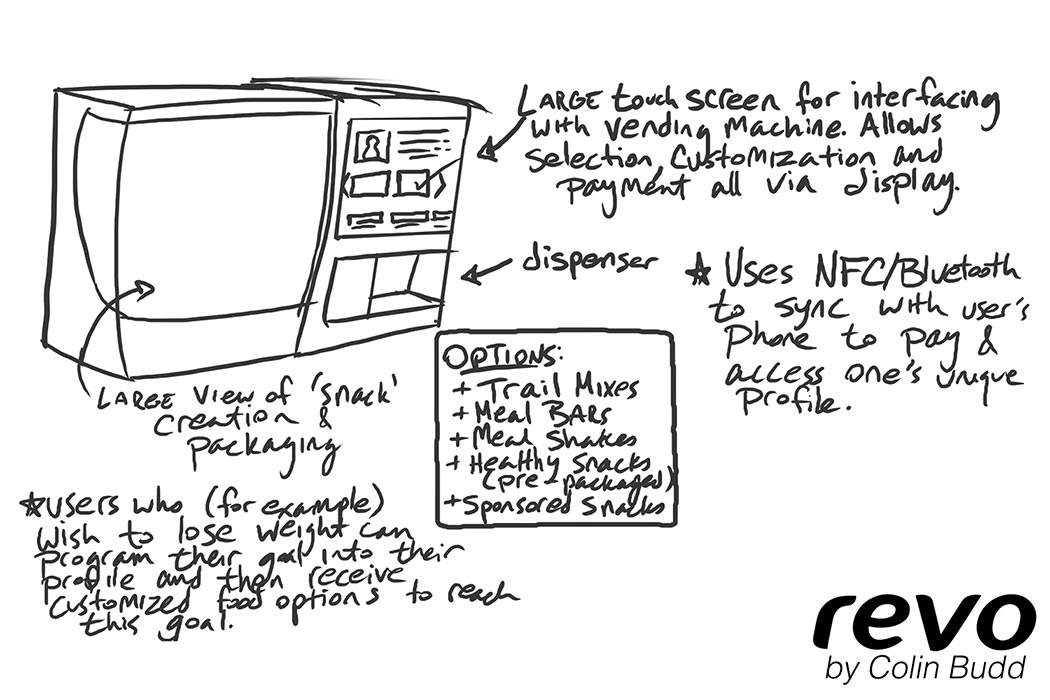 LARGE touch screen for interfacing
with vending machine. Allows
selection, customization and
payment all via display.
dispenser
* Uses NFC/Bluetooth
to sync with user's
phone to pay &
access one's unique
profile.
LARGE view of 'snack'
creation &
packaging
OPTIONS:
+ Trail Mixes
+ Meal BARs
+ Meal Shakes
+ Healthy Snacks
(pre-packaged)
+ Sponsored Snacks
* users who (for example)
wish to lose weight can
program their goal into their
profile and then receive
customized food options to reach
this goal.
revo
by Colin Budd